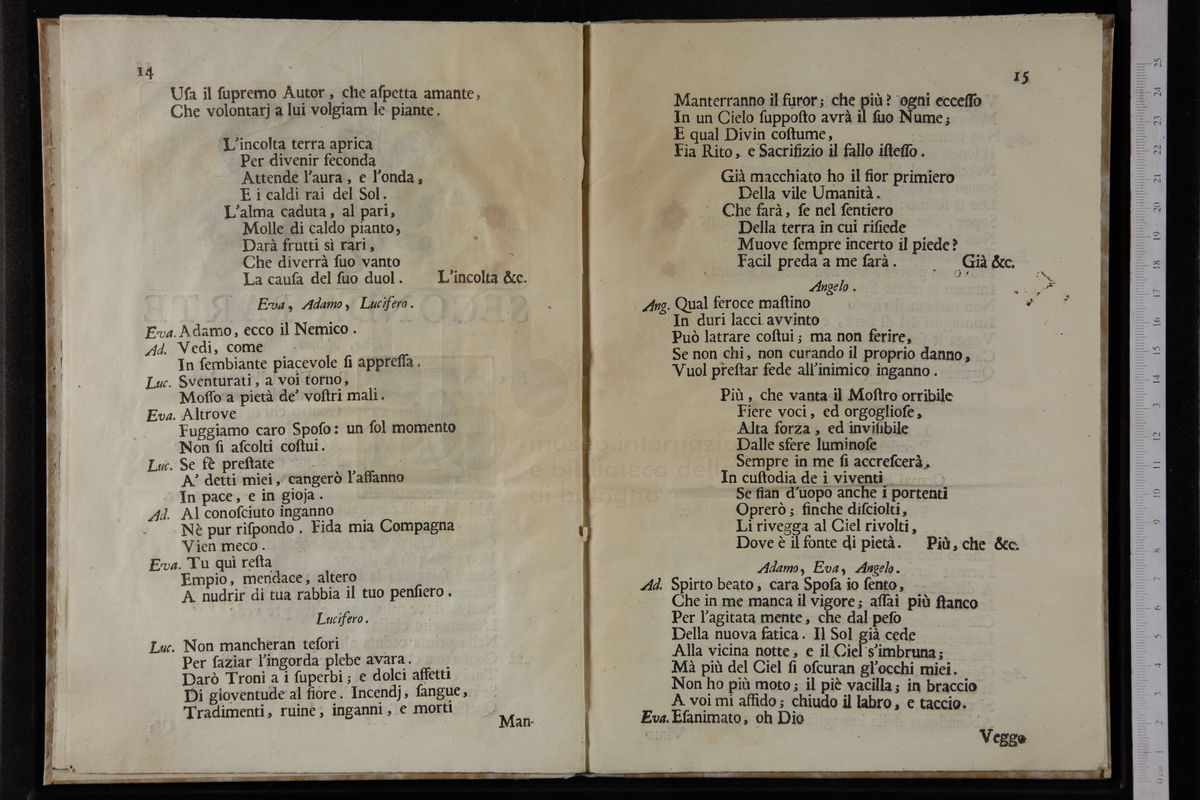 14
Uſa il ſupremo Autor, che aſpetta amante,
Che volontarj a lui volgiam le piante.
L'incolta terra aprica
Per divenir feconda
Attende l'aura, e l'onda,
E i caldi rai del Sol.
L'alma caduta, al pari,
Molle di caldo pianto,
Darà frutti sì rari,
Che diverrà ſuo vanto
La cauſa del ſuo duol. L'incolta &c.
Eva, Adamo, Lucifero.
Eva. Adamo, ecco il Nemico.
Ad. Vedi, come
In ſembiante piacevole ſi appreſſa.
Luc. Sventurati, a voi torno,
Moſſo a pietà de' voſtri mali.
Eva. Altrove
Fuggiamo caro Spoſo: un ſol momento
Non ſi aſcolti coſtui.
Luc. Se fè preſtate
A' detti miei, cangerò l'affanno
In pace, e in gioja.
Ad. Al conoſciuto inganno
Nè pur riſpondo. Fida mia Compagna
Vien meco.
Eva. Tu quì reſta
Empio, mendace, altero
A nudrir di tua rabbia il tuo penſiero.
Lucifero.
Luc. Non mancheran teſori
Per ſaziar l'ingorda plebe avara.
Darò Troni a i ſuperbi; e dolci affetti
Di gioventude al fiore. Incendj, ſangue,
Tradimenti, ruine, inganni, e morti
Man-
15
Manterranno il furor; che più? ogni ecceſſo
In un Cielo ſuppoſto avrà il ſuo Nume;
E qual Divin coſtume,
Fia Rito, e Sacrifizio il fallo iſteſſo.
Già macchiato ho il fior primiero
Della vile Umanità.
Che farà, ſe nel ſentiero
Della terra in cui riſiede
Muove ſempre incerto il piede?
Facil preda a me ſarà. Già &c.
Angelo.
Ang. Qual feroce maſtino
In duri lacci avvinto
Può latrare coſtui; ma non ferire,
Se non chi, non curando il proprio danno,
Vuol preſtar fede all'inimico inganno.
Più, che vanta il Moſtro orribile
Fiere voci, ed orgoglioſe,
Alta forza, ed inviſibile
Dalle sfere luminoſe
Sempre in me ſi accreſcerà.
In cuſtodia de i viventi
Se fian d'uopo anche i portenti
Oprerò; finche diſciolti,
Li rivegga al Ciel rivolti,
Dove è il fonte di pietà. Più, che &c.
Adamo, Eva, Angelo.
Ad. Spirto beato, cara Spoſa io ſento,
Che in me manca il vigore; aſſai più ſtanco
Per l'agitata mente, che dal peſo
Della nuova fatica. Il Sol già cede
Alla vicina notte, e il Ciel s'imbruna;
Mà più del Ciel ſi oſcuran gl'occhi miei.
Non ho più moto; il piè vacilla; in braccio
A voi mi affido; chiudo il labro, e taccio.
Eva. Eſanimato, oh Dio
Veggo